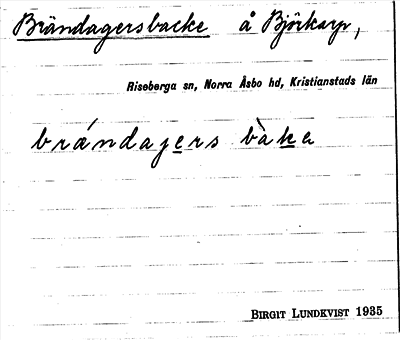 Brändagersbacke å Björkarp,
Riseberga sn, Norra Åsbo hd, Kristianstads län
brándagers bàka
BIRGIT LUNDKVIST 1935